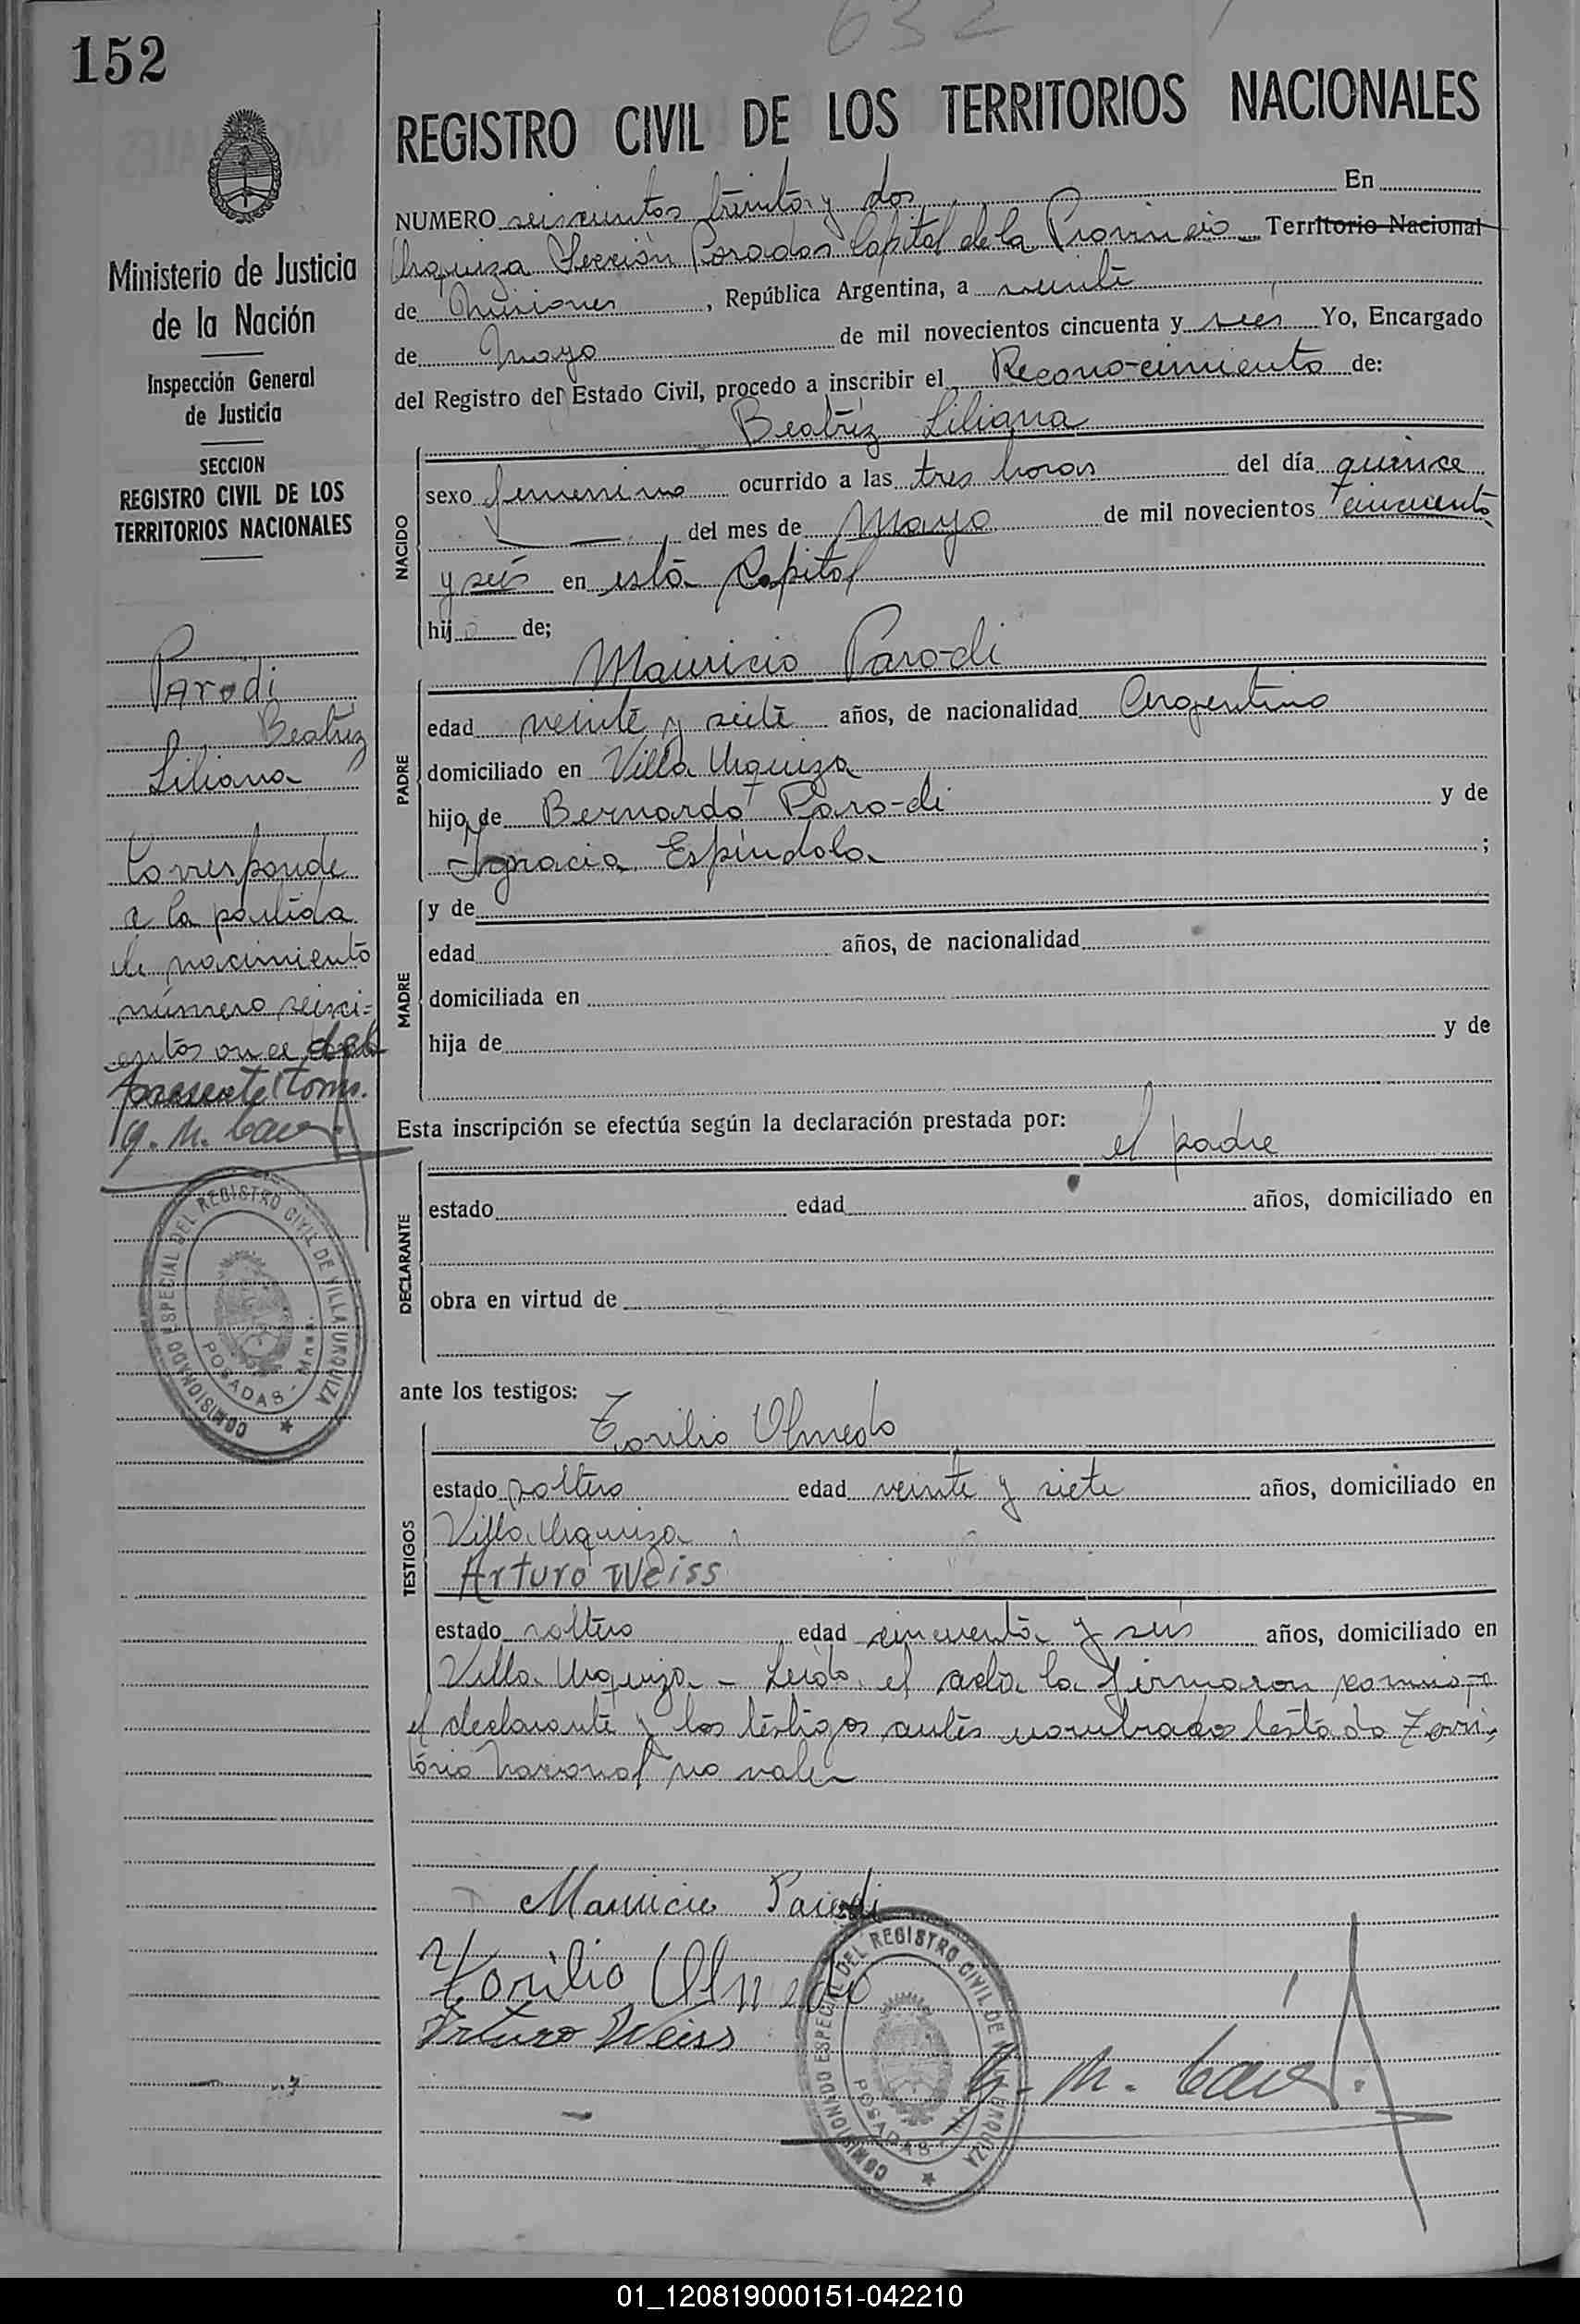 632
152
REGISTRO CIVIL DE LOS TERRITORIOS NACIONALES
Ministerio de Justicia
de la Nación
Inspección General
de Justicia
SECCION
REGISTRO CIVIL DE LOS
TERRITORIOS NACIONALES
Parodi
Beatriz
Liliana
Corresponde
a la partida
de nacimiento
número seisci=
entos once del
presente tomo.
COMISIONADO ESPECIAL DEL REGISTRO CIVIL DE VILLA URQUIZA
POSADAS - Mnes.
NUMERO seiscientos treinta y dos En
Urquiza Sección Posadas Capital de la Provincia Territorio Nacional
de Misiones, República Argentina, a veinte
de Mayo de mil novecientos cincuenta y seis Yo, Encargado
del Registro del Estado Civil, procedo a inscribir el Reconocimiento de:
Beatriz Liliana
NACIDO
sexo femenino ocurrido a las tres horas del día quince
del mes de Mayo de mil novecientos cincuenta
y seis en esta Capital
hija de;
Mauricio Parodi
PADRE
edad veinte y siete años, de nacionalidad Argentino
domiciliado en Villa Urquiza
hijo de Bernardo Parodi y de
Ignacia Espíndola ;
MADRE
y de
edad años, de nacionalidad
domiciliada en
hija de y de
Esta inscripción se efectúa según la declaración prestada por:
el padre
DECLARANTE
estado edad años, domiciliado en
obra en virtud de
ante los testigos:
Zorilio Olmedo
TESTIGOS
estado soltero edad veinte y siete años, domiciliado en
Villa Urquiza
Arturo Weiss
estado soltero edad cincuenta y seis años, domiciliado en
Villa Urquiza - Leida el acta la firmaron conmigo
el declarante y los testigos antes nombrados testado Terri-
torio Nacional no vale
Mauricio Parodi
Zorilio Olmedo
Arturo Weiss
COMISIONADO ESPECIAL DEL REGISTRO CIVIL DE URQUIZA
POSADAS
01_120819000151-042210